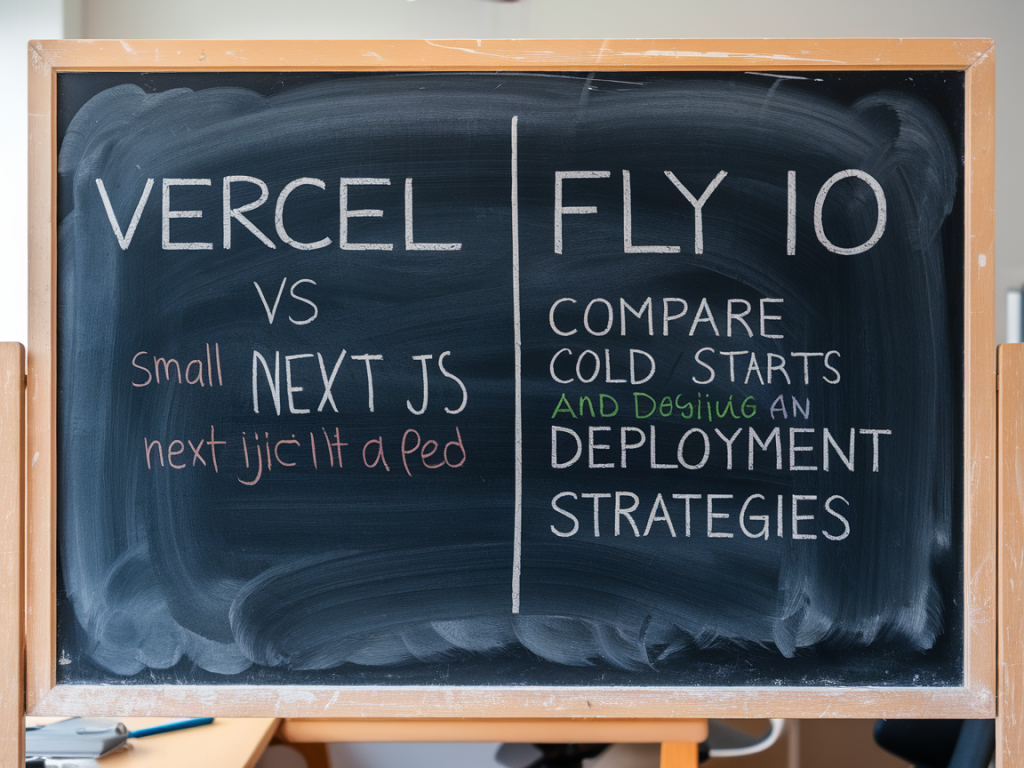 VERCEL
VS
small NEXT JS
next a ped
FLY IO
COMPARE
COLD STARTS
AND AN
DEPLOYMENT
STRATEGIES